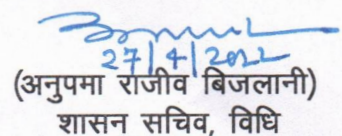 27/4/2022
(अनुपमा राजीव बिजलानी)
शासन सचिव, विधि